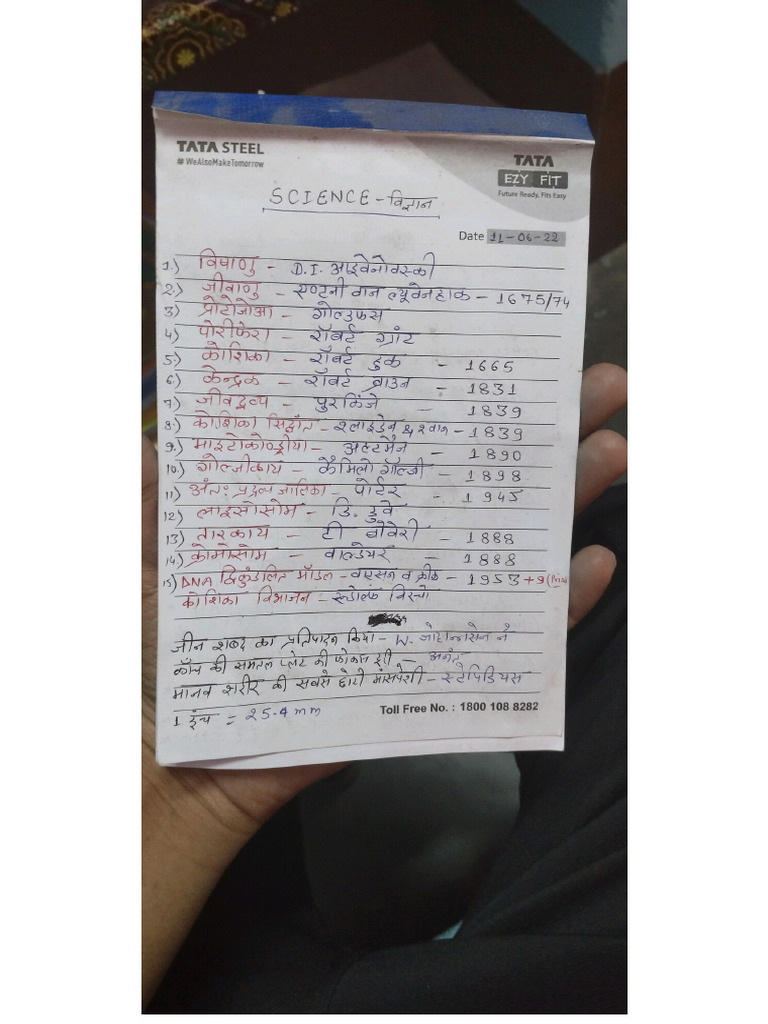 TATA STEEL
# WeAlsoMakeTomorrow
TATA
EZY FIT
Future Ready, Fits Easy
SCIENCE - विज्ञान
Date 11-06-22
1.) विषाणु - D.I. आइवेनोवस्की
2.) जीवाणु - एण्टनी वान ल्यूवेनहाक - 1675/74
3) प्रोटोजोआ - गोल्डफस
4) पोरीफेरा - रॉबर्ट ग्रांट
5.) कोशिका - रॉबर्ट हुक - 1665
6.) केन्द्रक - रॉबर्ट ब्राउन - 1831
7) जीवद्रव्य - पुरकिंजे - 1839
8.) कोशिका सिद्धांत - श्लाइडेन & श्वान - 1839
9.) माइटोकोण्ड्रीया - अल्टमैन - 1890
10.) गोल्जीकाय - कैमिलो गॉल्जी - 1898
11) अंतः प्रद्रव्य जालिका - पोर्टर - 1945
12) लाइसोसोम - डि. डुवे
13) तारकाय - टी बोवेरी - 1888
14.) क्रोमोसोम - वाल्डेयर - 1888
15) DNA द्विकुंडलित मॉडल - वाटसन व क्रीक - 1953 + 9
कोशिका विभाजन - रूडोल्फ विरचो
जीन शब्द का प्रतिपादन किया - W. जोहान्सेन ने
काँच की समतल प्लेट की फोकस दूरी - अनंत
मानव शरीर की सबसे छोटी मांसपेशी - स्टेपिडियस
1 इंच = 25.4 mm
Toll Free No. : 1800 108 8282